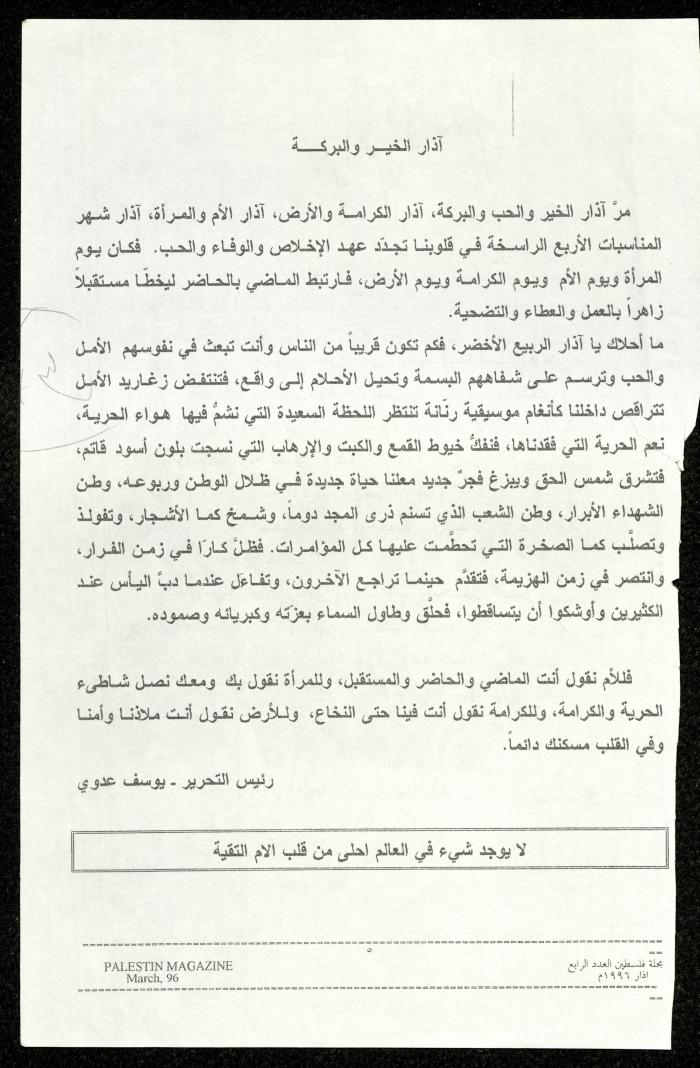 آذار الخيـر والبركـــة
مرَّ آذار الخير والحب والبركة، آذار الكرامـة والأرض، آذار الأم والمـرأة، آذار شـهر
المناسبات الأربع الراسـخة فـي قلوبنـا تجـدّد عهـد الإخـلاص والوفـاء والحـب. فكـان يـوم
المرأة ويوم الأم ويـوم الكرامة ويـوم الأرض، فـارتبط المـاضي بالحـاضر ليخطّـا مسـتقبلاً
زاهراً بالعمل والعطاء والتضحية.
ما أحلاك يا آذار الربيع الأخضر، فكم تكون قريبـاً من الناس وأنت تبعث في نفوسهم الأمـل
والحب وترسـم علـى شـفاههم البسمة وتحيـل الأحـلام إلـى واقـع، فتنتفـض زغـاريد الأمـل
تتراقص داخلنا كأنغام موسيقية رنّانة تنتظر اللحظة السعيدة التي نشمُّ فيها هـواء الحريـة،
نعم الحرية التي فقدناها، فنفكُّ خيوط القمع والكبت والإرهاب التي نسجت بلون أسود قاتم،
فتشرق شمس الحق ويبزغ فجرٌ جديد معلنـا حياة جديدة فـي ظـلال الوطن وربوعـه، وطـن
الشهداء الأبرار، وطن الشعب الذي تسنم ذرى المجد دومـاً، وشـمخ كمـا الأشـجار، وتفولـذ
وتصلَّب كمـا الصخرة التـي تحطَّمت عليهـا كـل المؤامـرات. فظـلَّ كـارّا فـي زمـن الفـرار،
وانتصر في زمن الهزيمة، فتقدَّم حينمـا تراجع الآخـرون، وتفـاءَل عندمـا دبَّ اليـأس عنـد
الكثيرين وأوشكوا أن يتساقطوا، فحلَّق وطاول السماء بعزته وكبريائه وصموده.
فلـلأم نقول أنت الماضي والحاضر والمستقبل، وللمرأة نقول بك ومعك نصل شـاطىء
الحرية والكرامة، وللكرامة نقول أنت فينا حتى النخاع، ولـلأرض نقـول أنـت ملاذنـا وأمنـا
وفي القلب مسكنك دائماً.
رئيس التحرير ـ يوسف عدوي
لا يوجد شيء في العالم احلى من قلب الام التقية
٥
مجلة فلسطين العدد الرابع
اذار ١٩٩٦م
PALESTIN MAGAZINE
March, 96